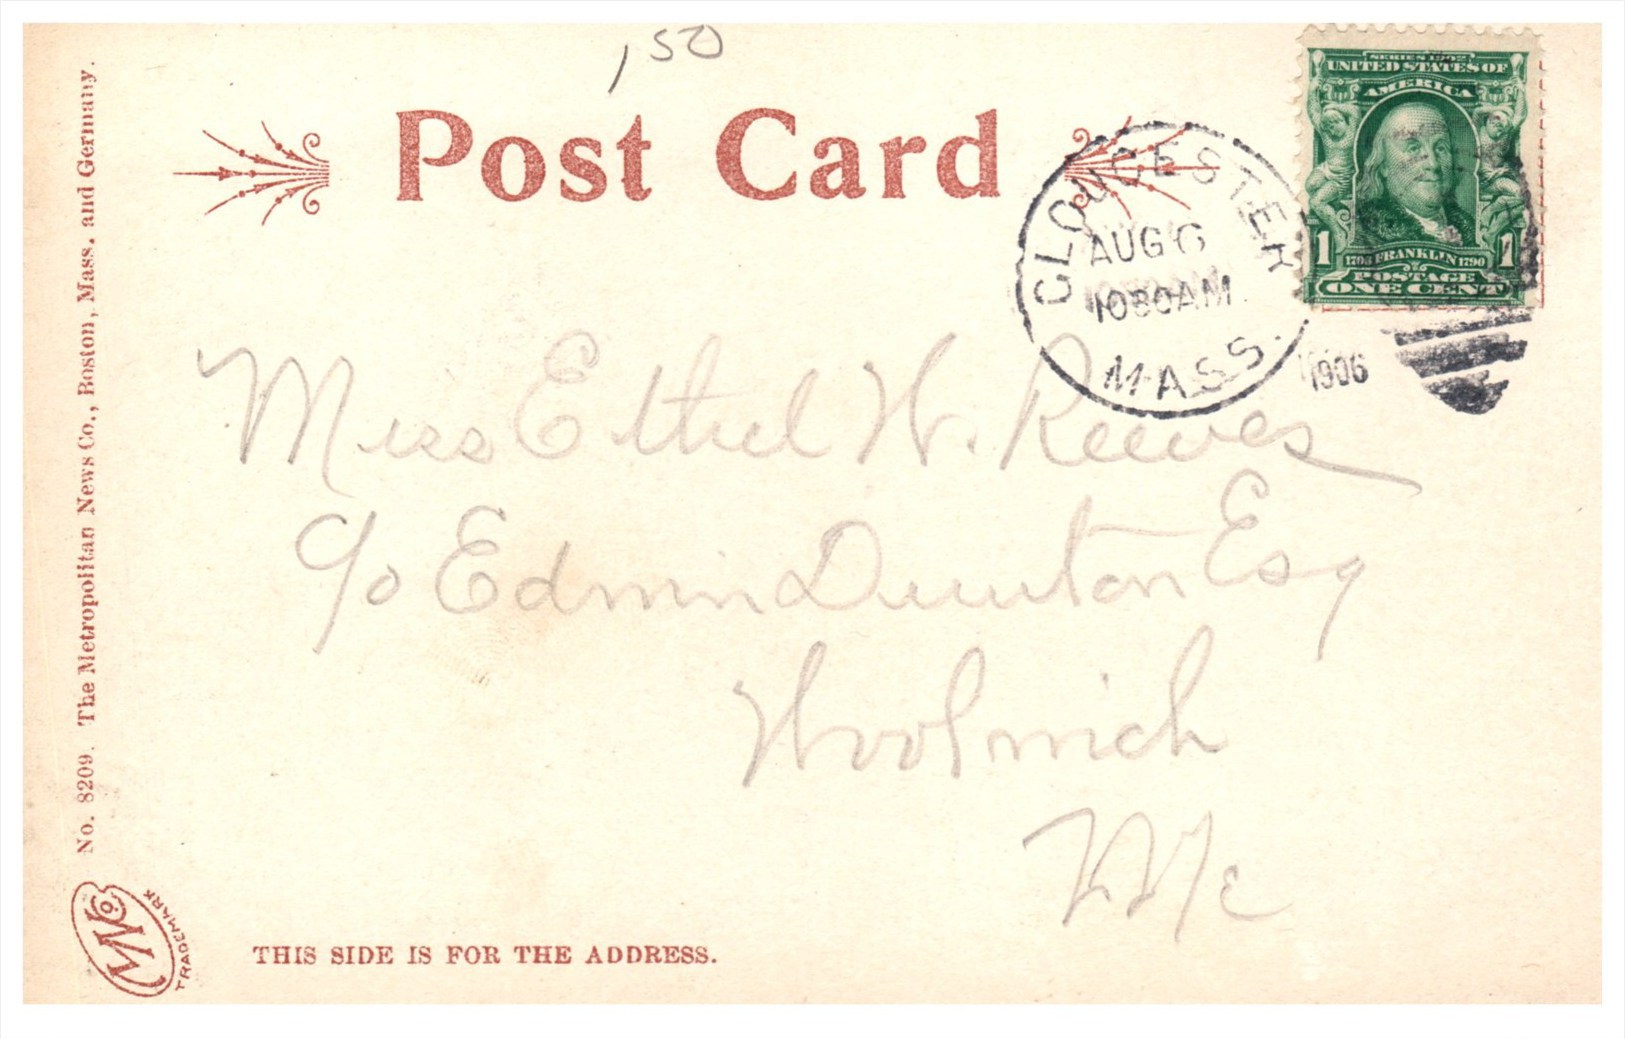 ,50
Post Card
SERIES 1902
UNITED STATES OF
AMERICA
1 1
1706 FRANKLIN 1790
POSTAGE
ONE CENT
GLOUCESTER
AUG 6
1030AM
MASS.
1906
Miss Ethel W. Reeves
c/o Edwin Dunton Esq
Woolwich
Me
No. 8209. The Metropolitan News Co., Boston, Mass. and Germany.
MNCo.
TRADEMARK
THIS SIDE IS FOR THE ADDRESS.